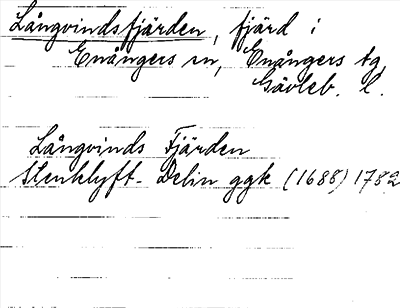 Långvindsfjärden, fjärd i
Enångers sn, Enångers tg
Gävleb. l.
Långvinds Fjärden
Stenklyft - Delin ggk (1688) 1782